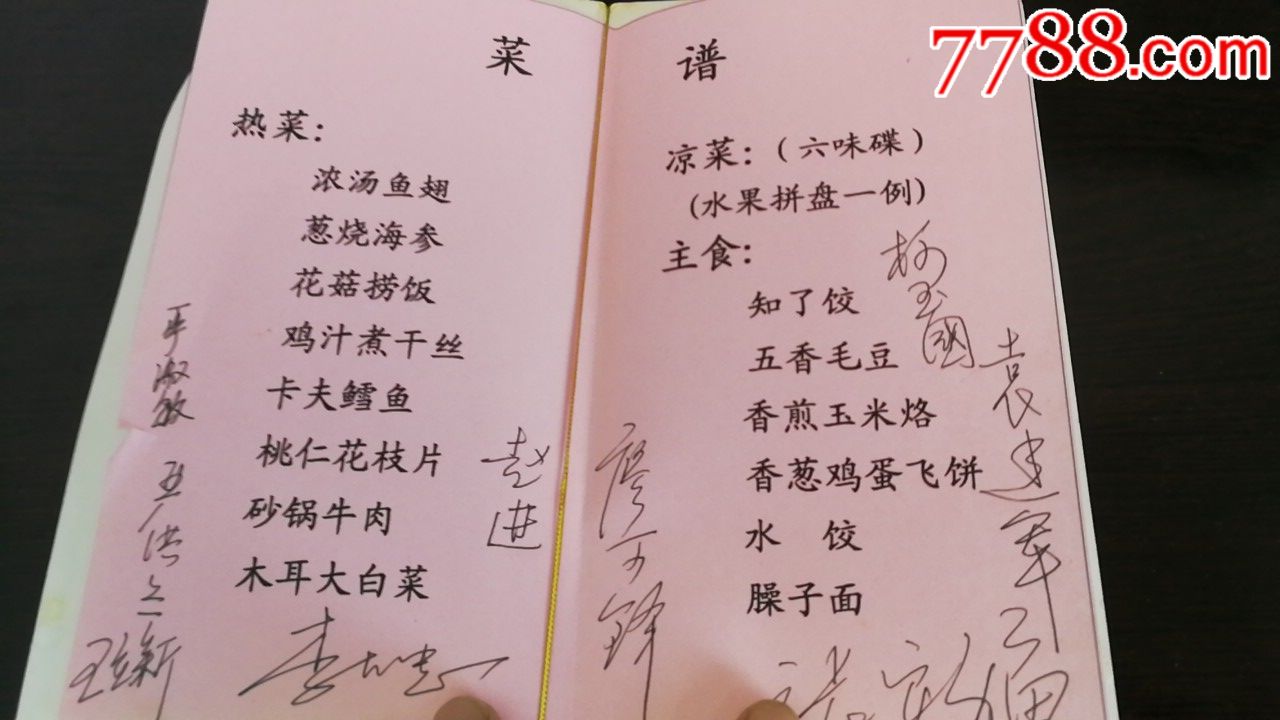 7788.com
菜 谱
热菜：
浓汤鱼翅
葱烧海参
花菇捞饭
鸡汁煮干丝
卡夫鳕鱼
桃仁花枝片
砂锅牛肉
木耳大白菜
凉菜：（六味碟）
(水果拼盘一例)
主食：
知了饺
五香毛豆
香煎玉米烙
香葱鸡蛋飞饼
水 饺
臊子面
赵进
袁建军